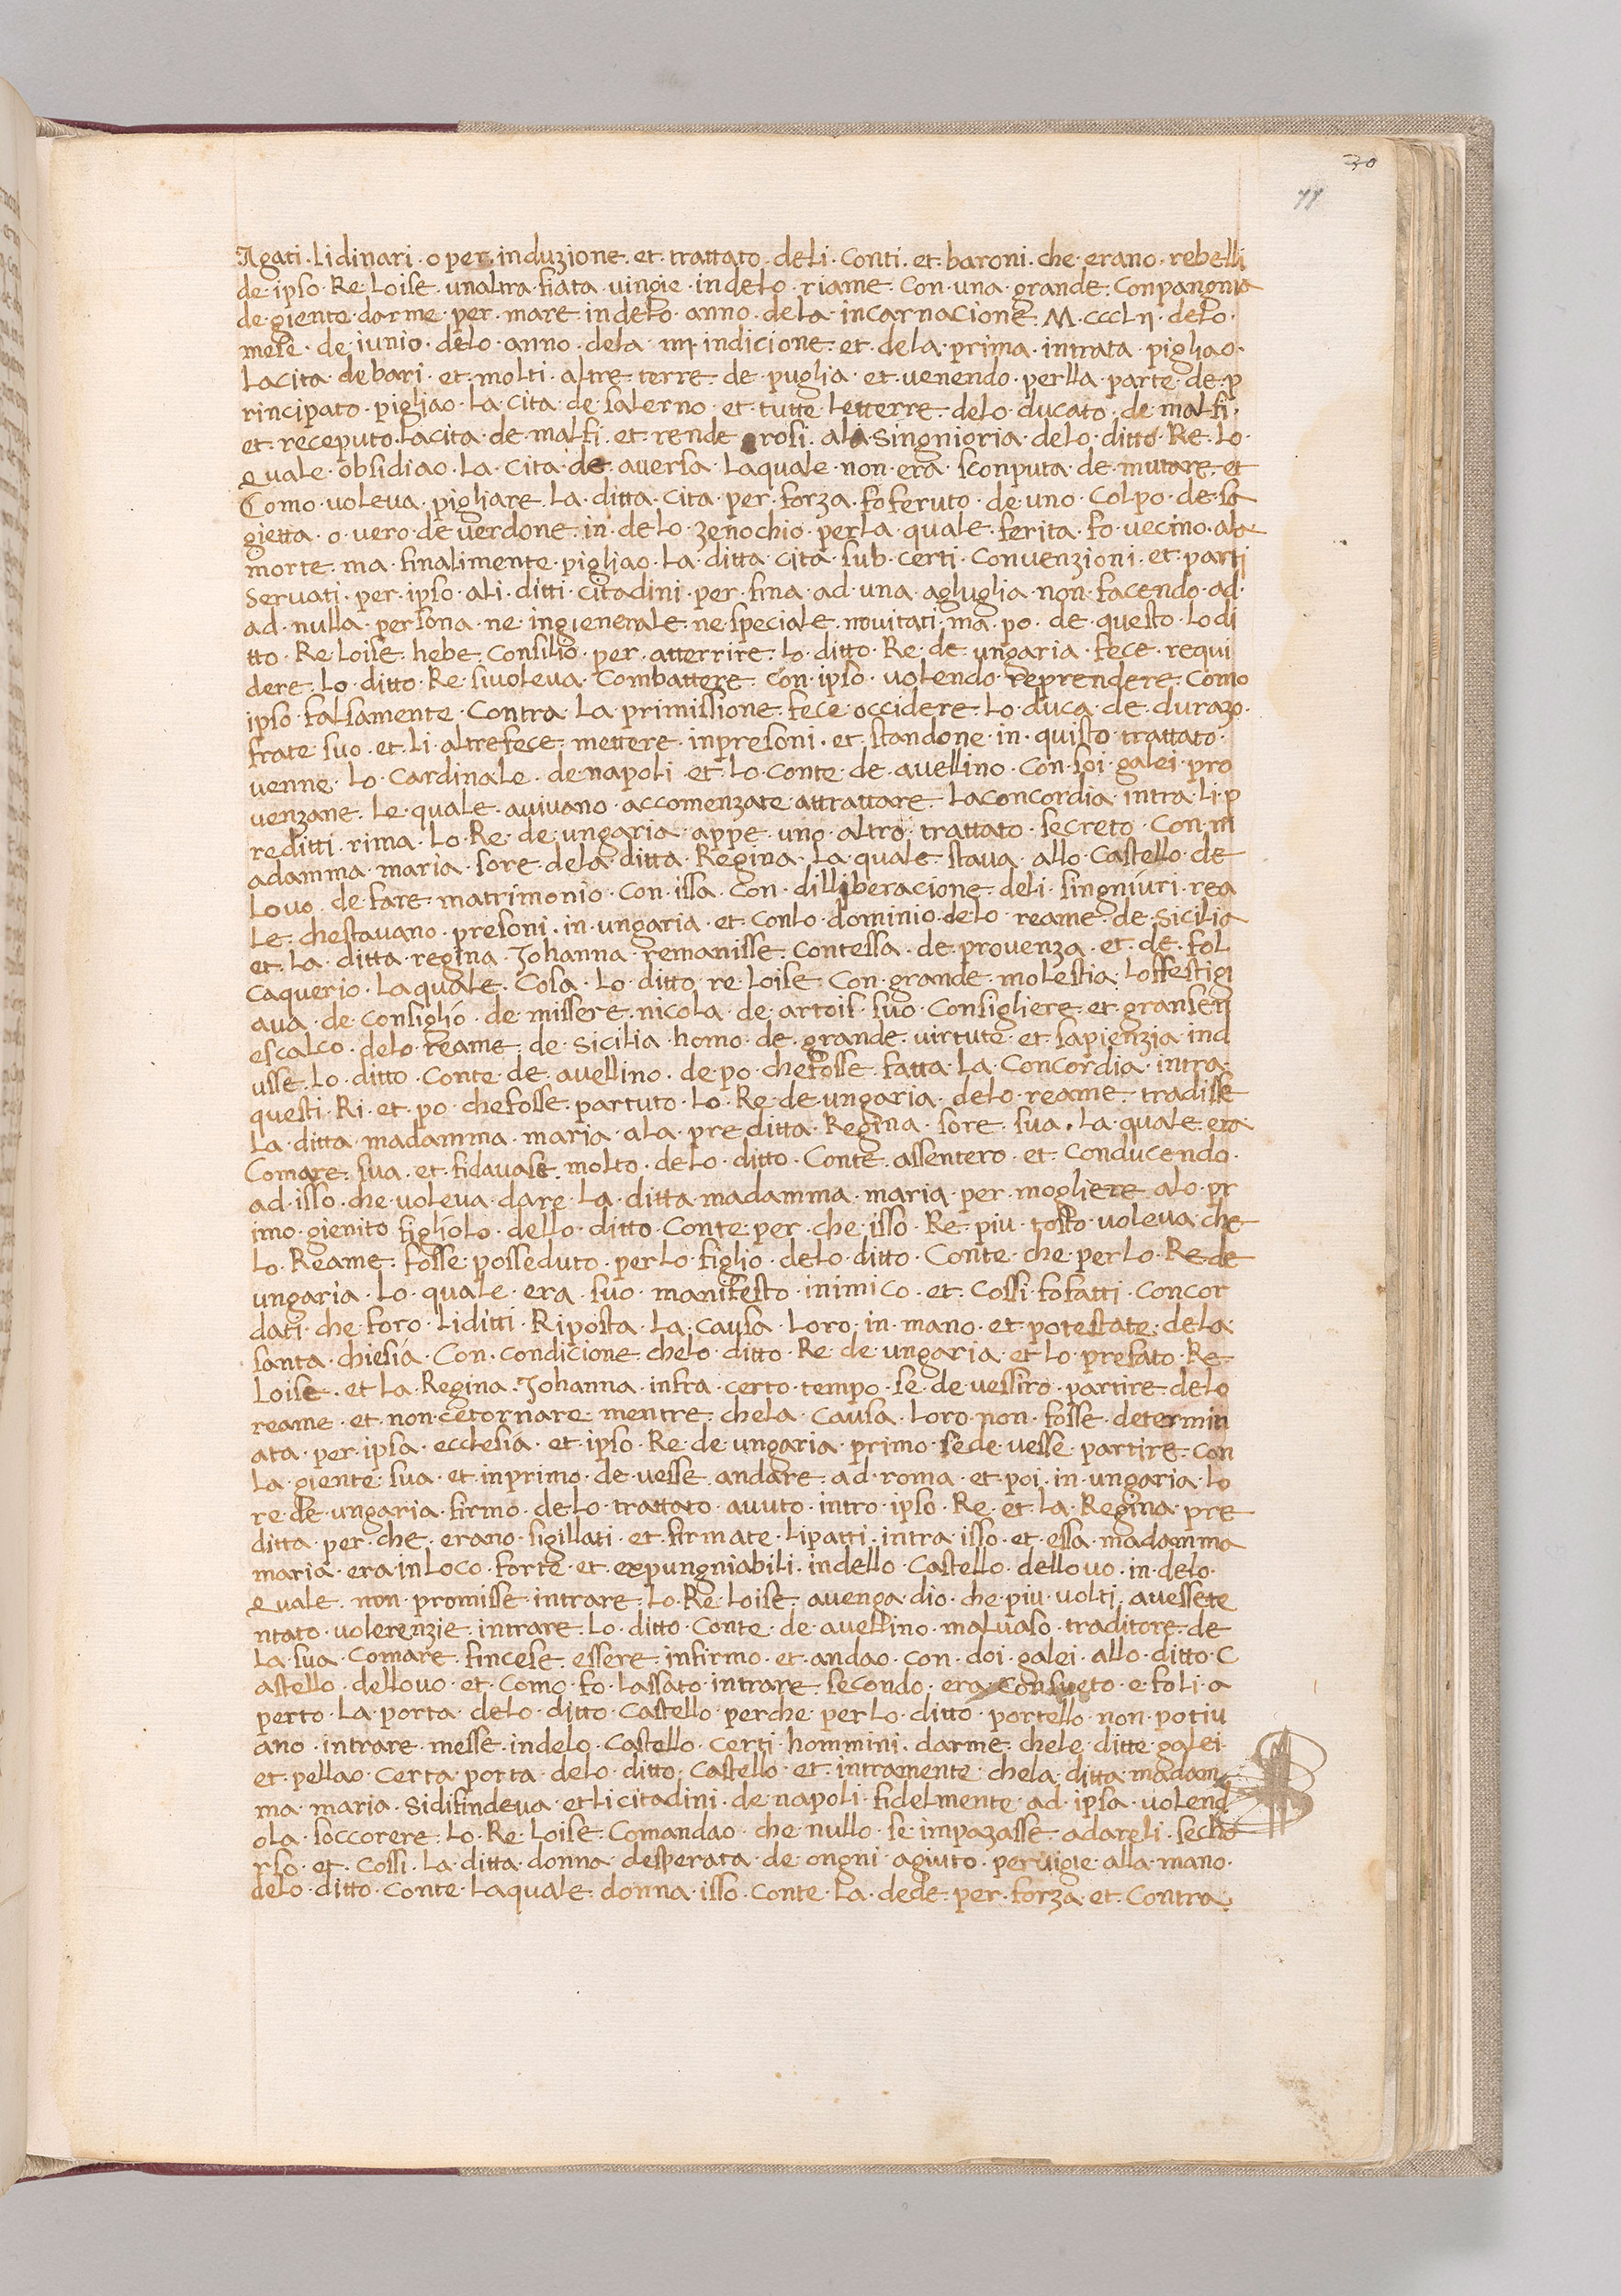 30
77
Agati · li dinari · o per · induzione · et · trattato · deli · Conti · et · baroni · che · erano · rebelli
de · ipso · Re · loise · unaltra · fiata · vingie · indelo · riame · Con · una · grande · Conpangnia
de · giente · darme · per · mare · indelo · anno · dela · incarnacione · M · cccLii · delo ·
mese · de · iunio · delo · anno · dela · iiii · indicione · et · dela · prima · intrata · pigliao ·
Lacita · debari · et · molti · altre · terre · de · puglia · et · venendo · perlla · parte · de · p
rincipato · pigliao · la · cita · de · salerno · et · tutte · letterre · delo · ducato · de · malfi ·
et · receputo · lacita · de · malfi · et · rende rosi · ala · singnioria · delo · ditto · Re · lo ·
quale · obsidiao · la · cita · de · aversa · laquale · non · era · sconputa · de · murare · et
Como · voleva · pigliare · la · ditta · cita · per · forza · fo feruto · de · uno · Colpo · de · sa
gietta · o · vero · de verdone · in · delo · zenochio · perla · quale · ferita · fo · vecino · ala
morte · ma · finalimente · pigliao · la · ditta · cita · sub · certi · Convenzioni · et · parti
Servati · per · ipso · ali · ditti · citadini · per · fina · ad · una · agluglia · non · facendo · ad ·
ad · nulla · persona · ne · ingienerale · ne · speciale · novitati · ma · po · de · questo · lo di
tto · Re · loise · hebe · Consilio · per · atterrire · lo · ditto · Re · de · ungaria · fece · requi
dere · lo · ditto · Re · sivoleva · Combattere · Con · ipso · volendo · reprendere · Como
ipso · falsamente · Contra · la · primissione · fece · occidere · lo · duca · de · durazo ·
frate · suo · et · li · altre fece · mettere · inpresoni · et · standone · in · quisto · trattato ·
venne · lo · Cardinale · de napoli · et · lo · Conte · de · avellino · Con · soi · galei · pro
venzane · le · quale · avivano · accomenzate · attrattare · laconcordia · intra · li · p
reditti · rima · lo · Re · de · ungaria · appe · uno · altro · trattato · secreto · Con · m
adamma · maria · sore · dela · ditta · Regina · la · quale · stava · allo · Castello · de
lovo · de · fare · matrimonio · con · issa · con · dilliberacione · deli · singniuri · rea
le · chestavano · presoni · in · ungaria · et · Conlo · dominio · delo · reame · de · Sicilia
et · la · ditta · regina · Johanna · remanisse · Contessa · de · provenza · et · de · fol
caquerio · laquale · Cosa · lo · ditto · re · loise · Con · grande · molestia · loffestigi
ava · de · consiglio · de · missere · nicola · de · artois · suo · Consigliere · et · gransen
escalco · delo · reame · de · Sicilia · homo · de · grande · virtute · et · sapienzia · ind
usse · lo · ditto · Conte · de · avellino · de · po · chefosse · fatta · la · Concordia · intra ·
questi · Ri · et · po · chefosse · partuto · lo · Re · de · ungaria · delo · reame · tradisse
la · ditta · madamma · maria · ala · pre ditta · Regina · sore · sua · la · quale · era
Comare · sua · et · fidavase · molto · delo · ditto · Conte · assentero · et · Conducendo ·
ad · isso · che · voleva · dare · la · ditta · madamma · maria · per · mogliere · alo · pr
imo · gienito · figliolo · dello · ditto · Conte · per · che · isso · Re · piu · tosto · voleva · che
lo · Reame · fosse · posseduto · perlo · figlio · delo · ditto · Conte · che · perlo · Re · de
ungaria · lo · quale · era · suo · manifesto · inimico · et · Cossi · fofatti · Concor
dati · che · foro · liditti · Riposta · la · Causa · loro · in · mano · et · potestate · dela ·
santa · chiesia · Con · condicione · chelo · ditto · Re · de · ungaria · et · lo · presato · Re ·
loise · et · la · Regina · Johanna · infra · certo · tempo · se · de · vessiro · partire · delo
reame · et · non · cetornare · mentre · chela · Causa · loro · non · fosse · determin
ata · per · ipsa · ecclesia · et · ipso · Re · de · ungaria · primo · sede · vesse · partire · con
la · giente · sua · et · inprimo · de · vesse · andare · ad · roma · et · poi · in · ungaria · lo
re · de · ungaria · firmo · delo · trattato · avuto · intro · ipso · Re · et · la · Regina · pre
ditta · per · che · erano · sigillati · et · firmate · lipatti · intra · isso · et · essa · madamma
maria · era in loco · forte · et · expungniabili · indello · Castello · dellovo · in · delo ·
quale · non · promisse · intrare · lo · Re · loise · avenga · dio · che · piu · volti · avessete
ntato · volerenzie · intrare · lo · ditto · Conte · de · avellino · malvaso · traditore · de
la · sua · Comare · fincese · essere · infirmo · et · andao · con · doi · galei · allo · ditto · C
astello · dellovo · et · Como · fo · lassato · intrare · secondo · era · consueto · e · foli · a
perto · la · porta · delo · ditto · Castello · perche · per lo · ditto · portello · non · potiu
ano · intrare · messe · indelo · Castello · Certi · hommini · darme · chele · ditte · galei ·
et · pellao · certa · porta · delo · ditto · Castello · et · intramente · chela · ditta · madam
ma · maria · sidifindeva · et li citadini · de · napoli · fidelmente · ad · ipsa · volend
ola · soccorere · lo · Re · loise · Comandao · che · nullo · se · impazasse · adareli · secho
rso · et · Cossi · la · ditta · donna · desperata · de · ongni · agiuto · pervigie · alla · mano ·
delo · ditto · Conte · laquale · donna · isso · Conte · la · dede · per · forza · et · Contra ·